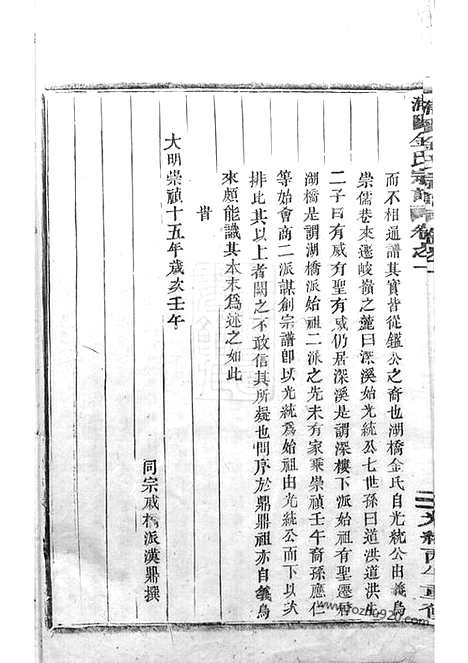 而不相通譜其實皆從鑑公之裔也湖橋金氏自光統公由義烏
崇儒巷來遷峻嶺之麓曰深溪始光統公七世孫曰道洪道洪生
二子曰有威有聖有威仍居深溪是謂深樓下派始祖有聖遷居
湖橋是謂湖橋派始祖二派之先未有家乘崇禎壬午裔孫應仁
等始會商二派謀創宗譜即以光統為始祖由光統公而下以次
排比其以上者闕之不敢信其所疑也問序於鼎鼎祖亦自義烏
來頗能識其本末為述之如此
旹
大明崇禎十五年歲亥壬午
同宗戚橋派漢鼎撰
金氏宗譜
卷之一
光緒丙午重修
www.fozhu920.com